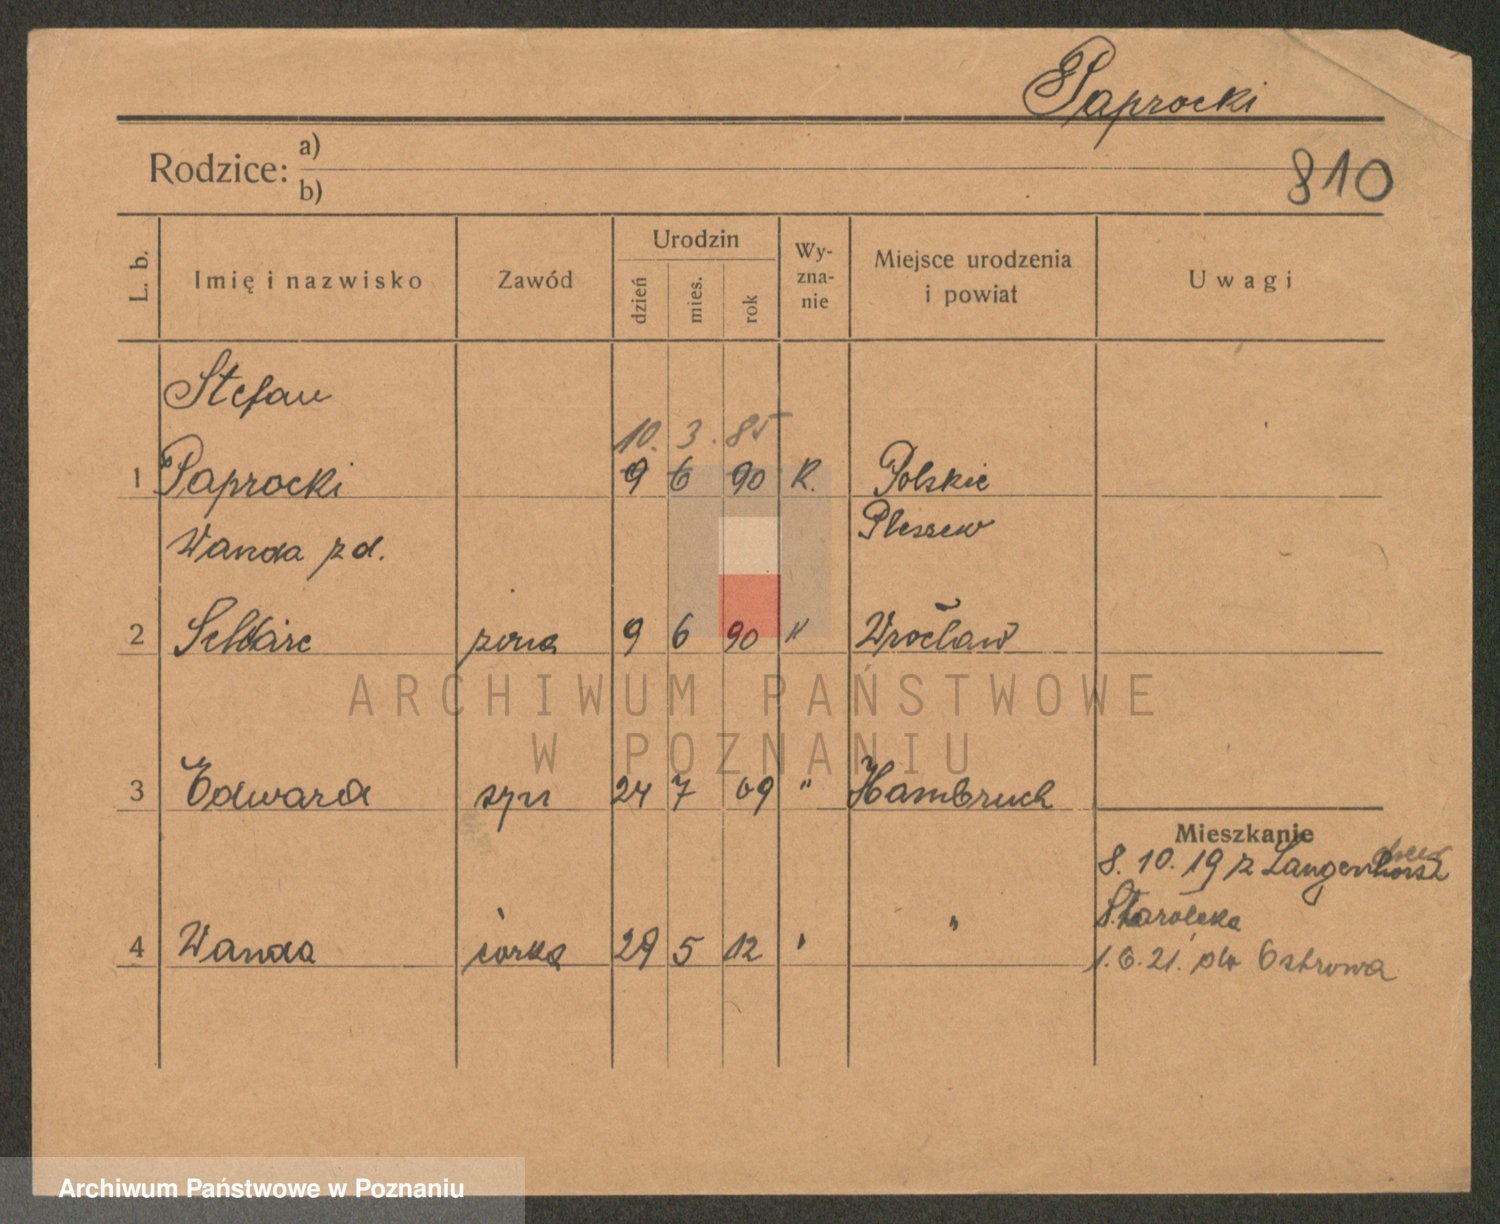 Paprocki
810
Rodzice: a)
b)
L. b. Imię i nazwisko Zawód Urodzin dzień mies. rok Wy-zna-nie Miejsce urodzenia i powiat Uwagi
Stefan
10. 3. 85
1 Paprocki 9 6 90 K. Polskie
Pleszew
Wanda z d.
2 żona 9 6 90 K Wrocław
ARCHIWUM PAŃSTWOWE
W POZNANIU
3 Edward syn 24 7 09 " Hambruch
Mieszkanie
8. 10. 19 z Langenhorst
Starołęka
4 Wanda córka 29 5 12 " "
1. 6. 21. do Ostrowa
Archiwum Państwowe w Poznaniu